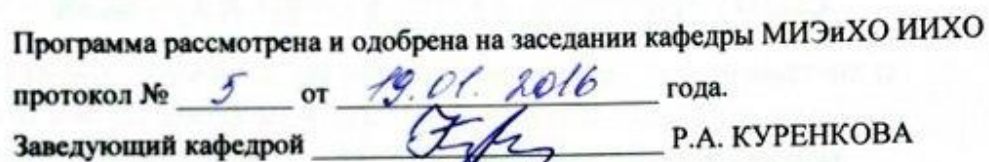 Программа рассмотрена и одобрена на заседании кафедры МИЭиХО ИИХО
протокол № 5 от 19.01.2016 года.
Заведующий кафедрой Р.А. КУРЕНКОВА